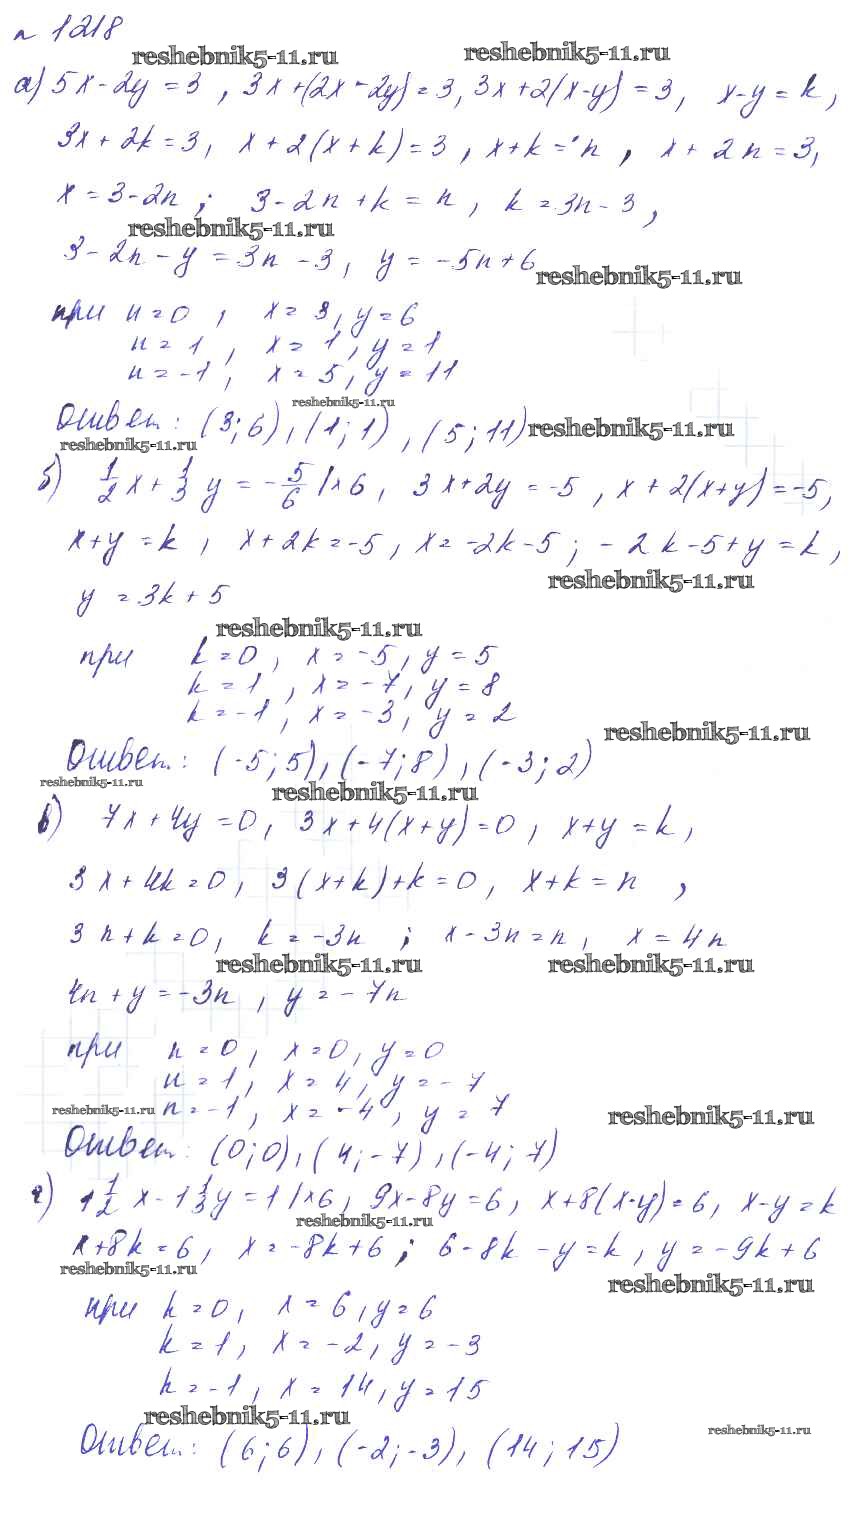 № 1218
reshebnik5-11.ru reshebnik5-11.ru
а) 5x - 2y = 3, 3x+(2x - 2y) = 3, 3x+2(x-y) = 3, x-y = k,
3x + 2k = 3, x + 2(x + k) = 3, x+k = n, x + 2n = 3,
x = 3-2n; 3-2n + k = n, k = 3n - 3,
reshebnik5-11.ru
3 - 2n - y = 3n - 3, y = -5n+6
reshebnik5-11.ru
при n = 0, x = 3, y = 6
n = 1, x = 1, y = 1
n = -1, x = 5, y = 11
reshebnik5-11.ru
Ответ: (3; 6), (1; 1), (5; 11)
reshebnik5-11.ru
reshebnik5-11.ru
б) 1/2 x + 1/3 y = - 5/6 | ×6, 3x+2y = -5, x + 2(x+y) = -5,
x+y = k, x + 2k = -5, x = -2k - 5; - 2k - 5 + y = k,
reshebnik5-11.ru
y = 3k + 5
reshebnik5-11.ru
при k = 0, x = -5, y = 5
k = 1, x = -7, y = 8
k = -1, x = -3, y = 2
reshebnik5-11.ru
Ответ: (-5; 5), (-7; 8), (-3; 2)
reshebnik5-11.ru
reshebnik5-11.ru
в) 7x + 4y = 0, 3x + 4(x+y) = 0, x+y = k,
3x + 4k = 0, 3(x+k)+k = 0, x+k = n,
3n + k = 0, k = -3n; x - 3n = n, x = 4n
reshebnik5-11.ru reshebnik5-11.ru
4n + y = -3n, y = -7n
при n = 0, x = 0, y = 0
n = 1, x = 4, y = -7
reshebnik5-11.ru n = -1, x = -4, y = 7 reshebnik5-11.ru
Ответ: (0; 0), (4; -7), (-4; 7)
г) 1 1/2 x - 1 1/3 y = 1 | ×6, 9x - 8y = 6, x+8(x-y) = 6, x-y = k
reshebnik5-11.ru
x+8k = 6, x = -8k + 6; 6 - 8k - y = k, y = -9k + 6
reshebnik5-11.ru reshebnik5-11.ru
при k = 0, x = 6, y = 6
k = 1, x = -2, y = -3
k = -1, x = 14, y = 15
reshebnik5-11.ru
reshebnik5-11.ru
Ответ: (6; 6), (-2; -3), (14; 15)